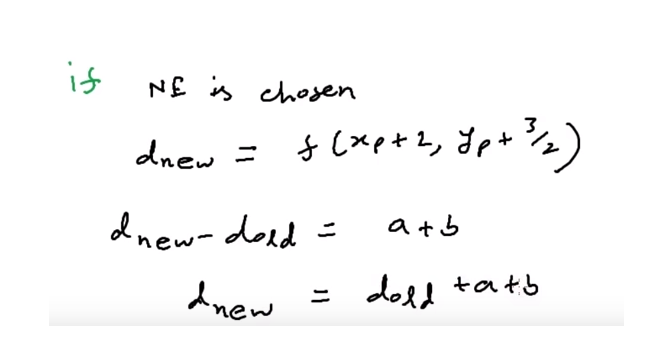 if NE is chosen
dnew = f(xp+2, yp+3/2)
dnew-dold = a+b
dnew = dold+a+b